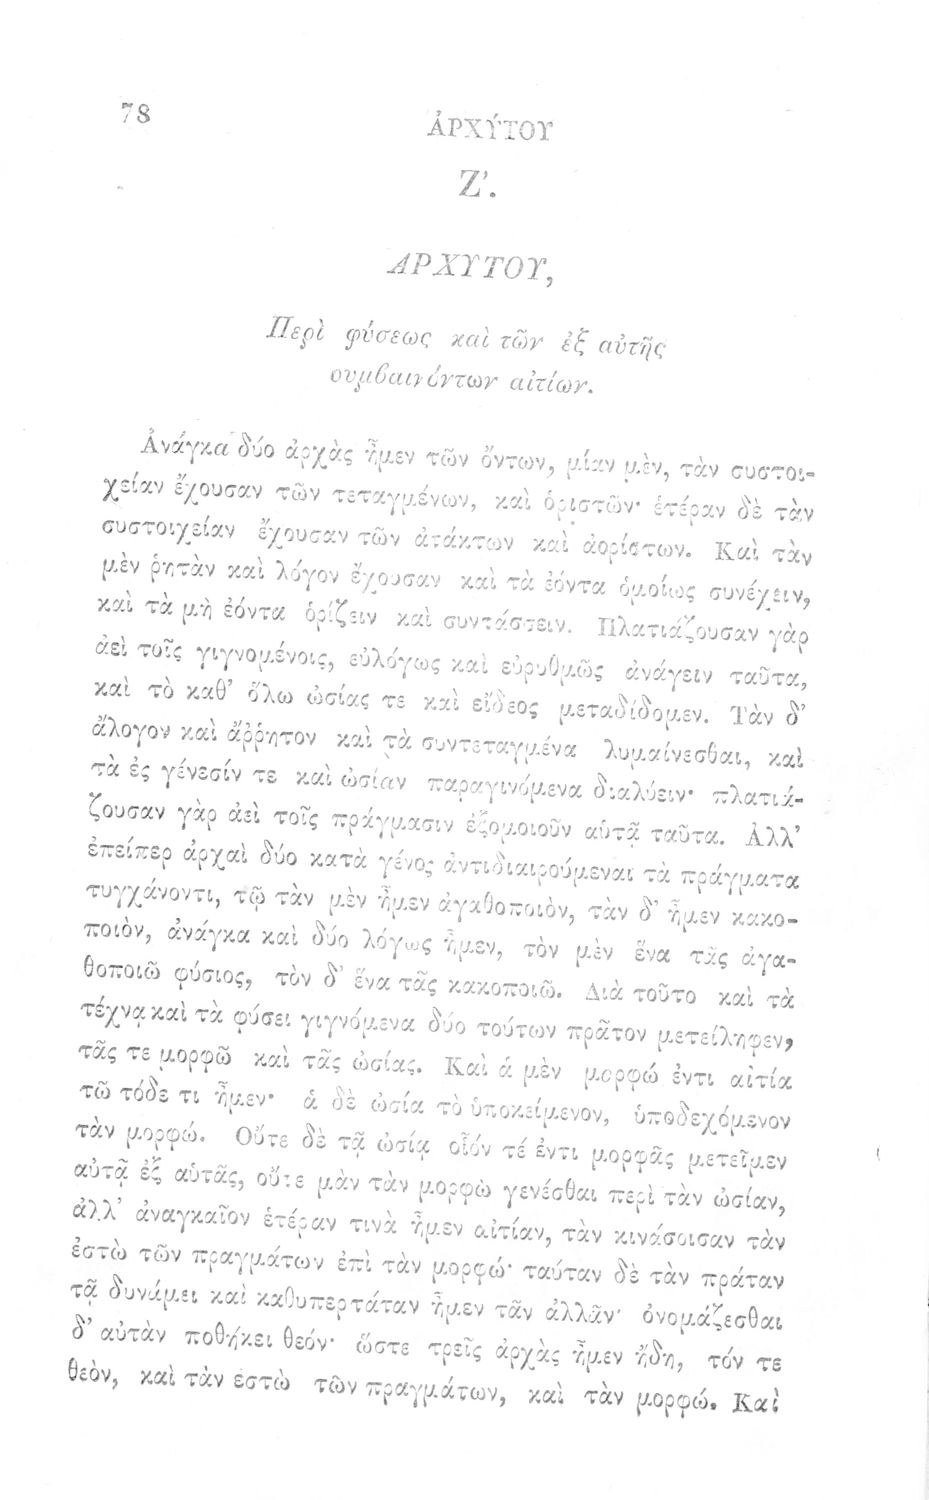 78
ἈΡΧΎΤΟΥ
Ζ'.
ΑΡΧΥΤΟΥ,
Περὶ φύσεως καὶ τῶν ἐξ αὐτῆς
συμβαινόντων αἰτίων.
Ἀνάγκα δύο ἀρχὰς ἦμεν τῶν ὄντων, μίαν μὲν, τὰν συστοι-
χείαν ἔχουσαν τῶν τεταγμένων, καὶ ὁριστῶν· ἑτέραν δὲ τὰν
συστοιχείαν ἔχουσαν τῶν ἀτάκτων καὶ ἀορίστων. Καὶ τὰν
μὲν ῥητὰν καὶ λόγον ἔχουσαν καὶ τὰ ἐόντα ὁμοίως συνέχειν,
καὶ τὰ μὴ ἐόντα ὁρίζειν καὶ συντάσσειν. Πλατιάζουσαν γὰρ
ἀεὶ τοῖς γιγνομένοις, εὐλόγως καὶ εὐρυθμῶς ἀνάγειν ταῦτα,
καὶ τὸ καθ' ὅλω ὠσίας τε καὶ εἴδεος μεταδίδομεν. Τὰν δ'
ἄλογον καὶ ἄῤῥητον καὶ τὰ συντεταγμένα λυμαίνεσθαι, καὶ
τὰ ἐς γένεσίν τε καὶ ὠσίαν παραγινόμενα διαλύειν· πλατιά-
ζουσαν γὰρ ἀεὶ τοῖς πράγμασιν ἐξομοιοῦν αὑτᾷ ταῦτα. Ἀλλ'
ἐπείπερ ἀρχαὶ δύο κατὰ γένος ἀντιδιαιρούμεναι τὰ πράγματα
τυγχάνοντι, τῷ τὰν μὲν ἦμεν ἀγαθοποιὸν, τὰν δ' ἦμεν κακο-
ποιὸν, ἀνάγκα καὶ δύο λόγως ἦμεν, τὸν μὲν ἕνα τᾶς ἀγα-
θοποιῶ φύσιος, τὸν δ' ἕνα τᾶς κακοποιῶ. Διὰ τοῦτο καὶ τὰ
τέχνᾳ καὶ τὰ φύσει γιγνόμενα δύο τούτων πρᾶτον μετείληφεν,
τᾶς τε μορφῶ καὶ τᾶς ὠσίας. Καὶ ἁ μὲν μορφώ ἐντι αἰτία
τῶ τόδε τι ἦμεν· ἁ δὲ ὠσία τὸ ὑποκείμενον, ὑποδεχόμενον
τὰν μορφώ. Οὔτε δὲ τᾷ ὠσίᾳ οἷόν τέ ἐντι μορφᾶς μετεῖμεν
αὐτᾷ ἐξ αὑτᾶς, οὔτε μὰν τὰν μορφὼ γενέσθαι περὶ τὰν ὠσίαν,
ἀλλ' ἀναγκαῖον ἑτέραν τινὰ ἦμεν αἰτίαν, τὰν κινάσοισαν τὰν
ἐστὼ τῶν πραγμάτων ἐπὶ τὰν μορφώ· ταύταν δὲ τὰν πράταν
τᾷ δυνάμει καὶ καθυπερτάταν ἦμεν τᾶν ἀλλᾶν· ὀνομάζεσθαι
δ' αὐτὰν ποθήκει θεόν· ὥστε τρεῖς ἀρχὰς ἦμεν ἤδη, τόν τε
θεὸν, καὶ τὰν ἐστὼ τῶν πραγμάτων, καὶ τὰν μορφώ. Καὶ